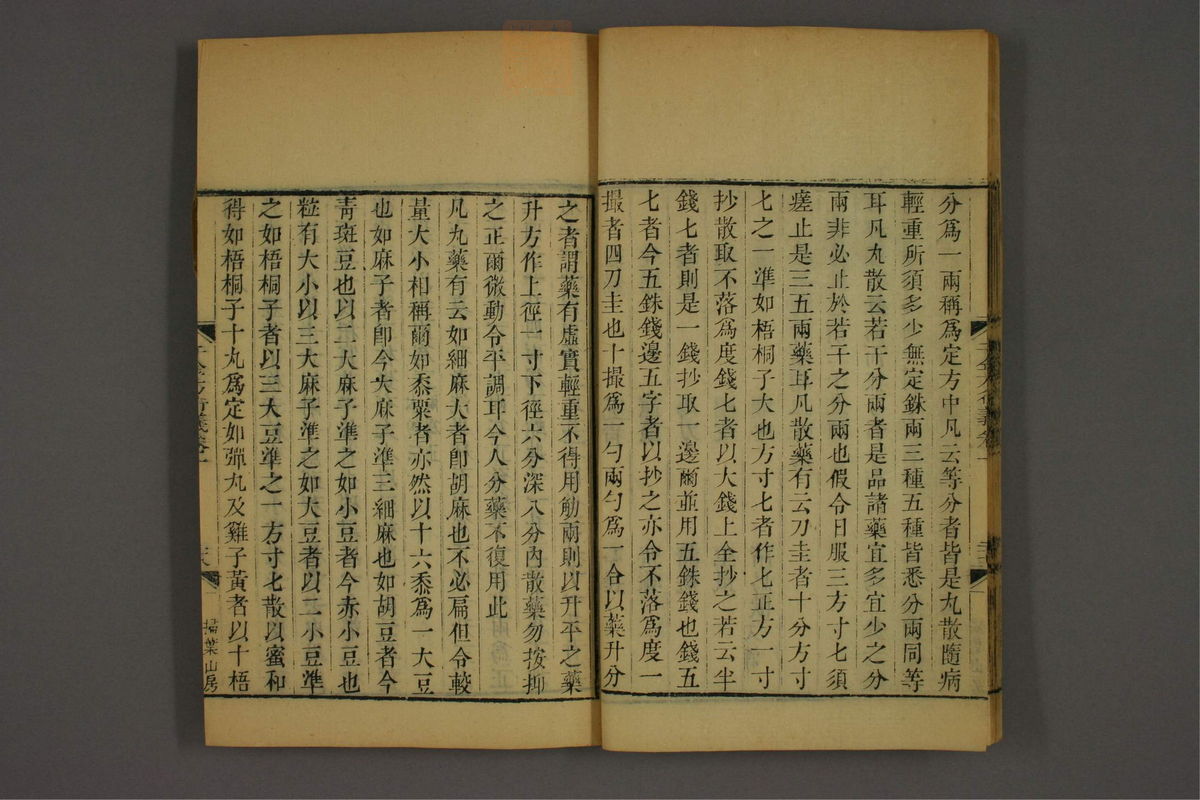 分為一兩稱為定方中凡云等分者皆是丸散隨病
輕重所須多少無定銖兩三種五種皆悉分兩同等
耳凡丸散云若干分兩者是品諸藥宜多宜少之分
兩非必止於若干之分兩也假令日服三方寸匕須
瘥止是三五兩藥耳凡散藥有云刀圭者十分方寸
匕之一準如梧桐子大也方寸匕者作匕正方一寸
抄散取不落為度錢匕者以大錢上全抄之若云半
錢匕者則是一錢抄取一邊爾並用五銖錢也錢五
匕者今五銖錢邊五字者以抄之亦令不落為度一
撮者四刀圭也十撮為一勺兩勺為一合以藥升分
之者謂藥有虛實輕重不得用觔兩則以升平之藥
升方作上徑一寸下徑六分深八分內散藥勿按抑
之正爾微動令平調耳今人分藥不復用此
凡丸藥有云如細麻大者即胡麻也不必扁但令較
量大小相稱爾如黍粟者亦然以十六黍為一大豆
也如麻子者即今大麻子準三細麻也如胡豆者今
靑斑豆也以二大麻子準之如小豆者今赤小豆也
粒有大小以三大麻子準之如大豆者以二小豆準
之如梧桐子者以三大豆準之一方寸匕散以蜜和
得如梧桐子十丸為定如彈丸及雞子黃者以十梧
千金方衍義卷一
掃葉山房